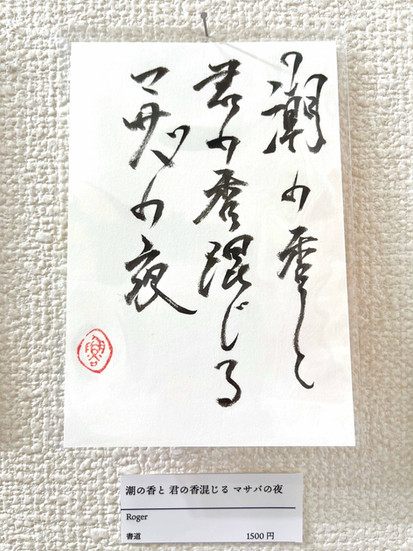 潮の香と
君の香混じる
マサバの夜
潮の香と 君の香混じる マサバの夜
Roger
書道 1500 円